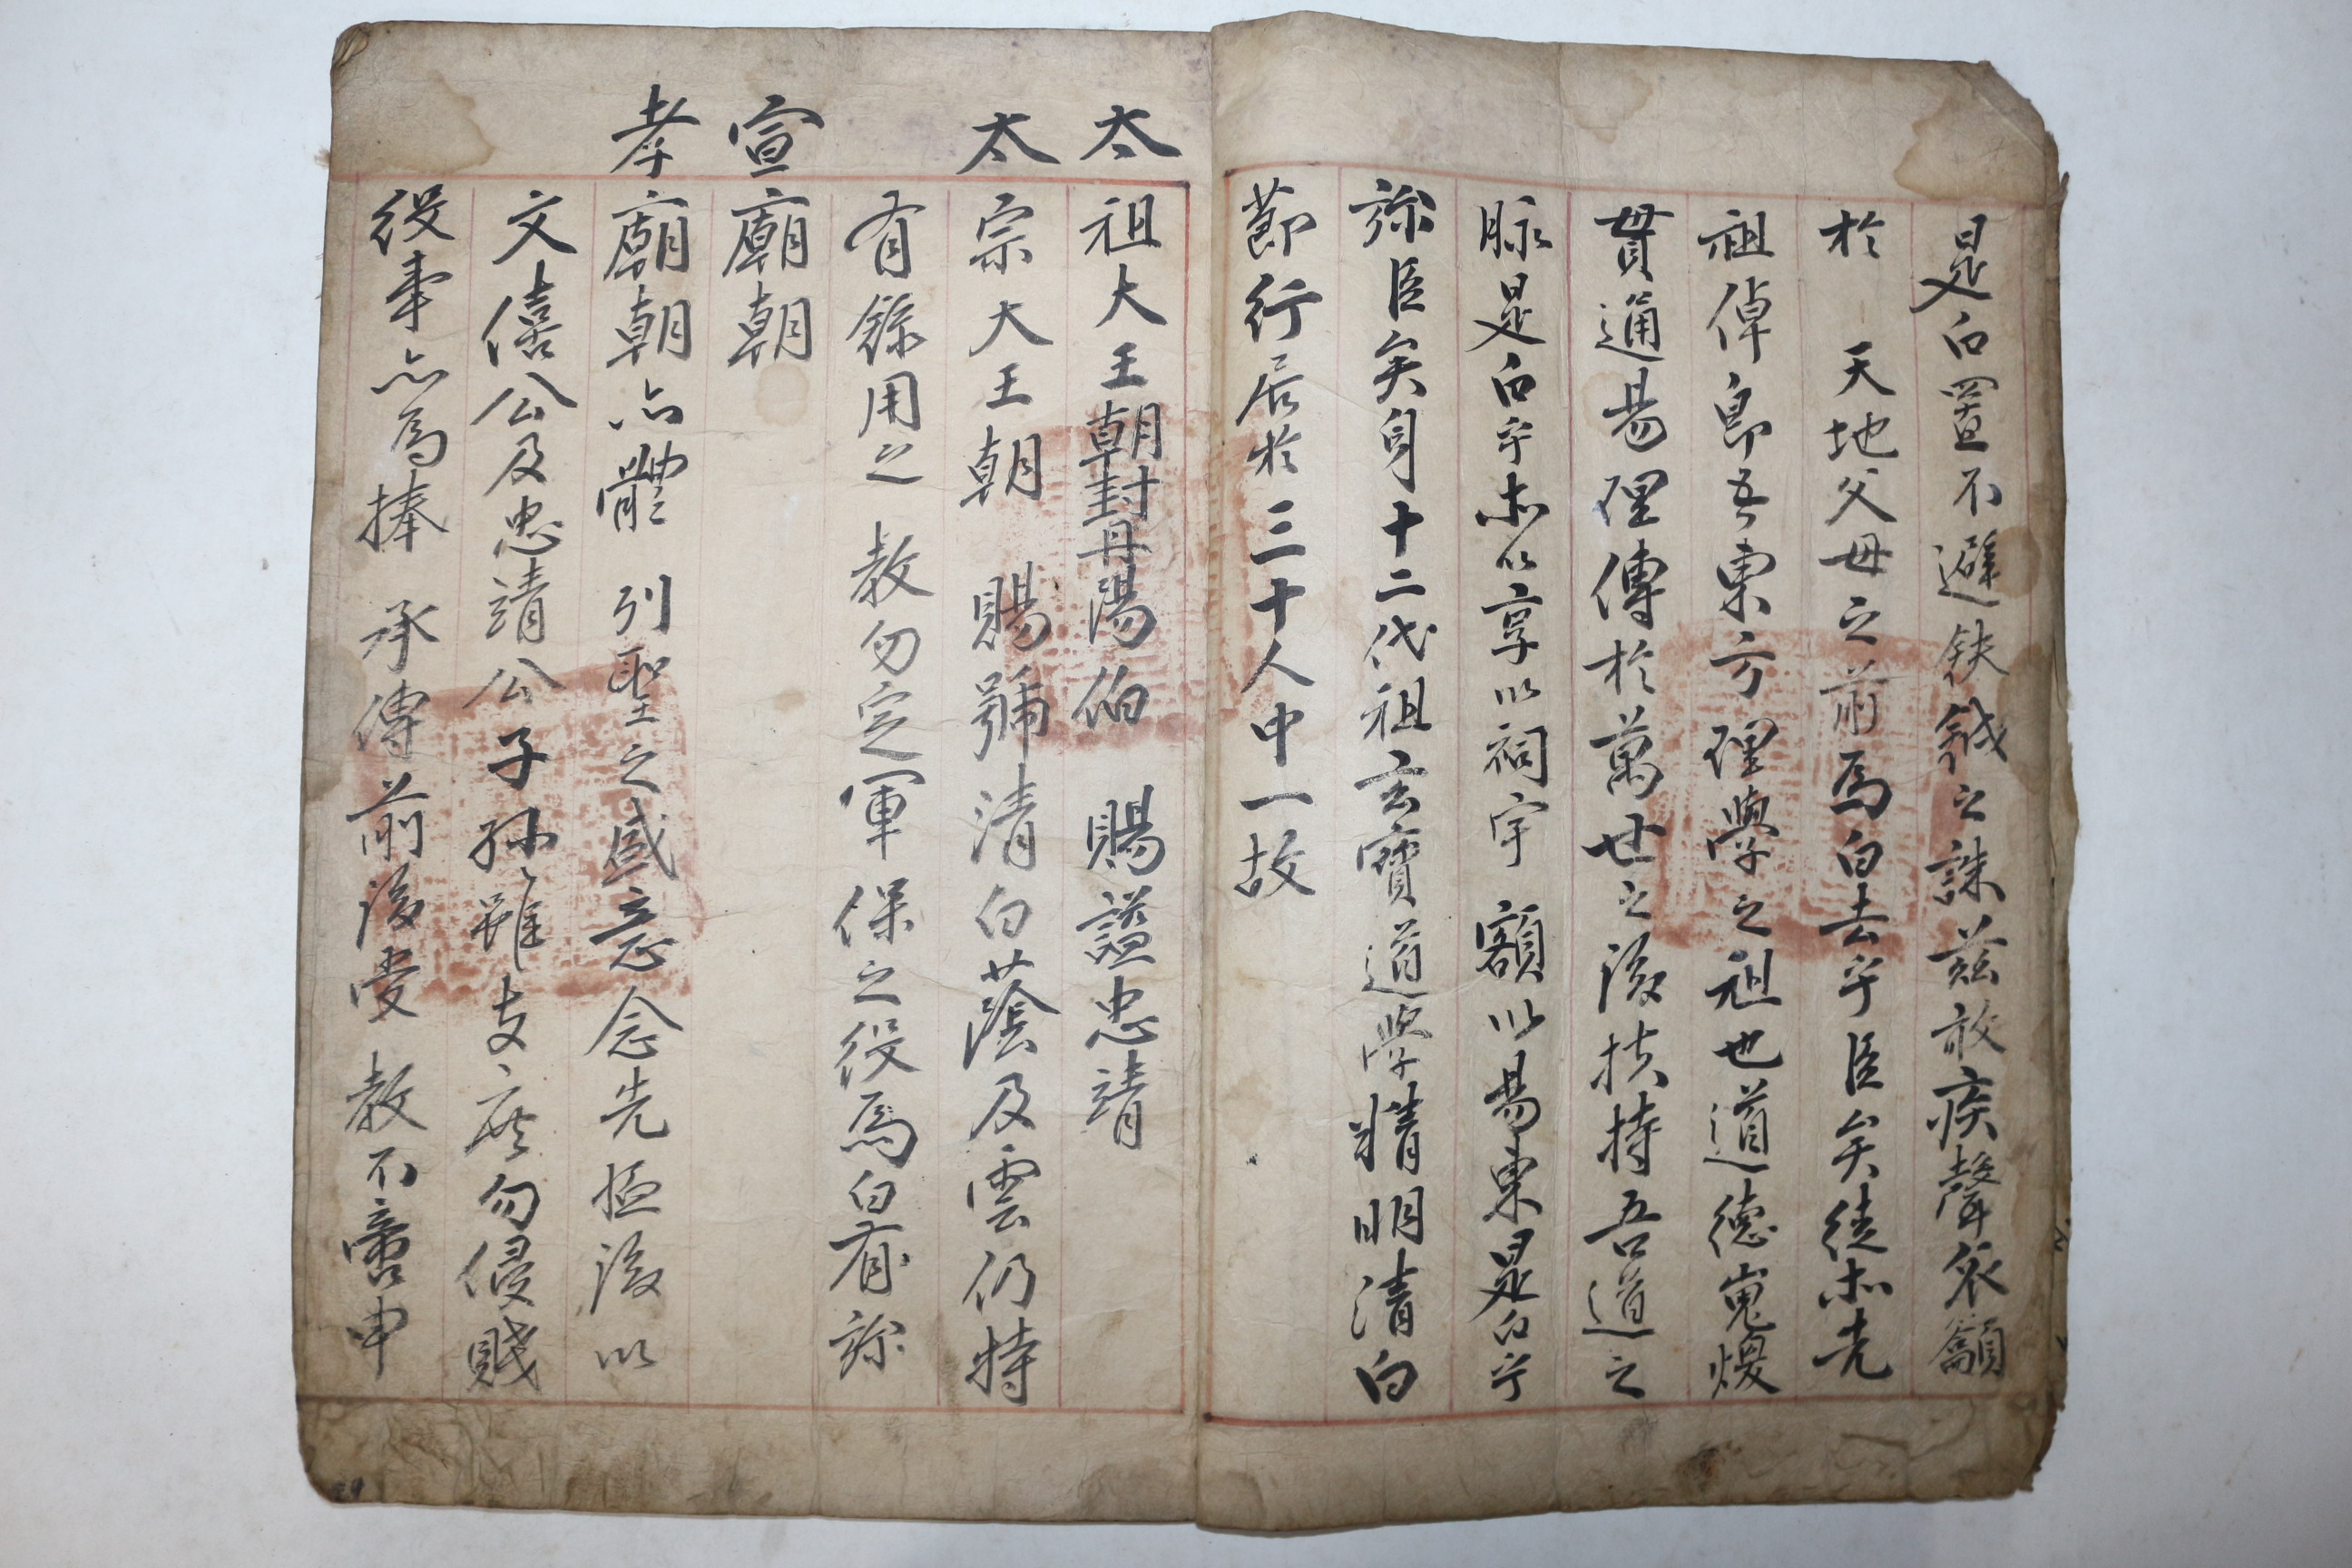 是白置不避鈇鉞之誅玆敢疾聲哀籲
於 天地父母之前爲白去乎臣矣徒木先
祖倬卽吾東方理學之祖也道德嵬煥
貫通易理傳於萬世之後扶持吾道之
脉是白乎木以享以祠宇 額以易東是白乎
旀臣矣身十二代祖玄寶道學精明清白
節行居於三十人中一故
太祖大王朝封丹陽伯 賜謚忠靖
太宗大王朝 賜號清白蔭及雲仍特
有錄用之 教勿定軍保之役爲白有旀
宣廟朝
孝廟朝亦體 列聖之盛意念先揾後以
文僖公及忠靖公子孫雖支庶勿侵賤
役事亦爲捧 承傳前後受 教不啻申